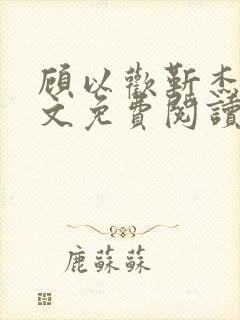 顾以歡靳杰
文免費閱讀
鹿蘇蘇